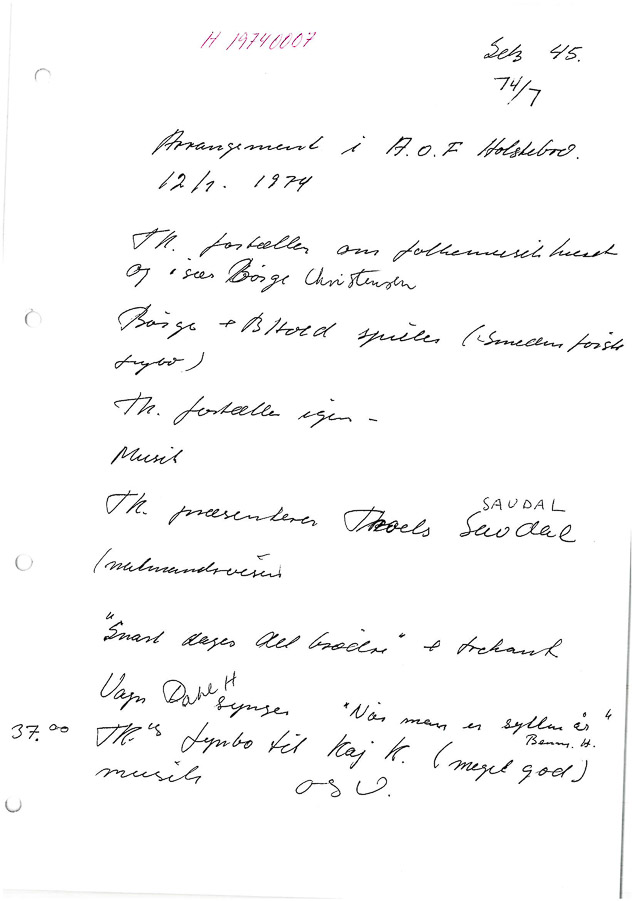 H 19740007
45.
74/7
Arrangement i A.O.F Holstebro.
12/1. 1974
TK. fortæller om folkemusikhuset
og især Børge Christensen
Børge + B Hold spiller (Smedensførste
fynbo)
TK. fortæller igen -
Musik
TK. præsenterer Troels Saudal
SAUDAL
(natmandsvisen
"Snart dages det brødre" + trekant
Vagn Dahl H synger "Når man er sytten år"
Benny. H.
37.00 TK.'s fynbo til Kaj K. (meget god)
musik osv.